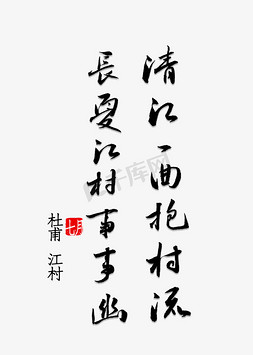 清江一曲抱村流
長夏江村事事幽
杜甫 江村
七月